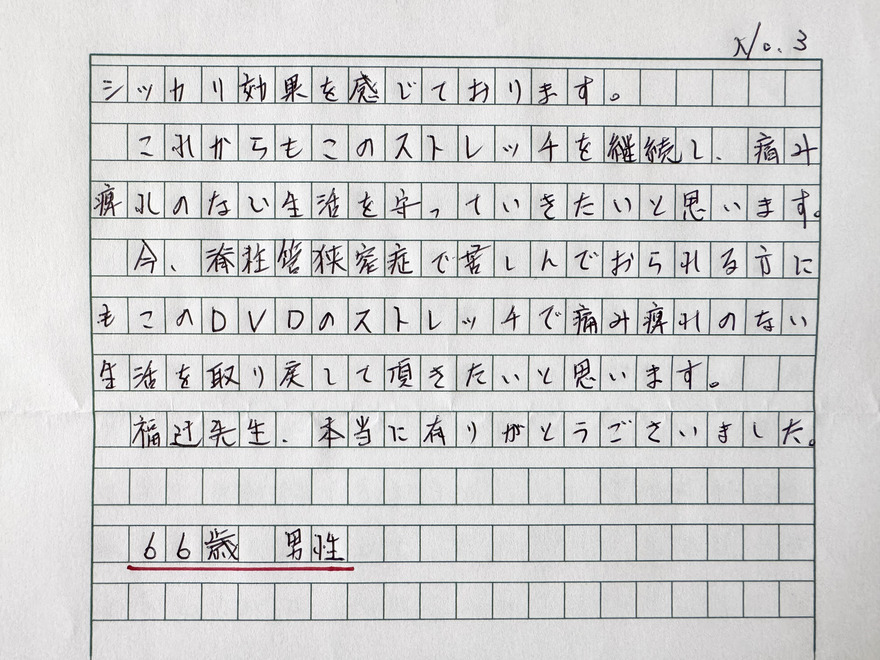 No.3
シッカリ効果を感じております。
これからもこのストレッチを継続し、痛み
痺れのない生活を守っていきたいと思います。
今、脊柱管狭窄症で苦しんでおられる方に
もこのDVDのストレッチで痛み痺れのない
生活を取り戻して頂きたいと思います。
福辻先生、本当に有りがとうございました。
66歳 男性